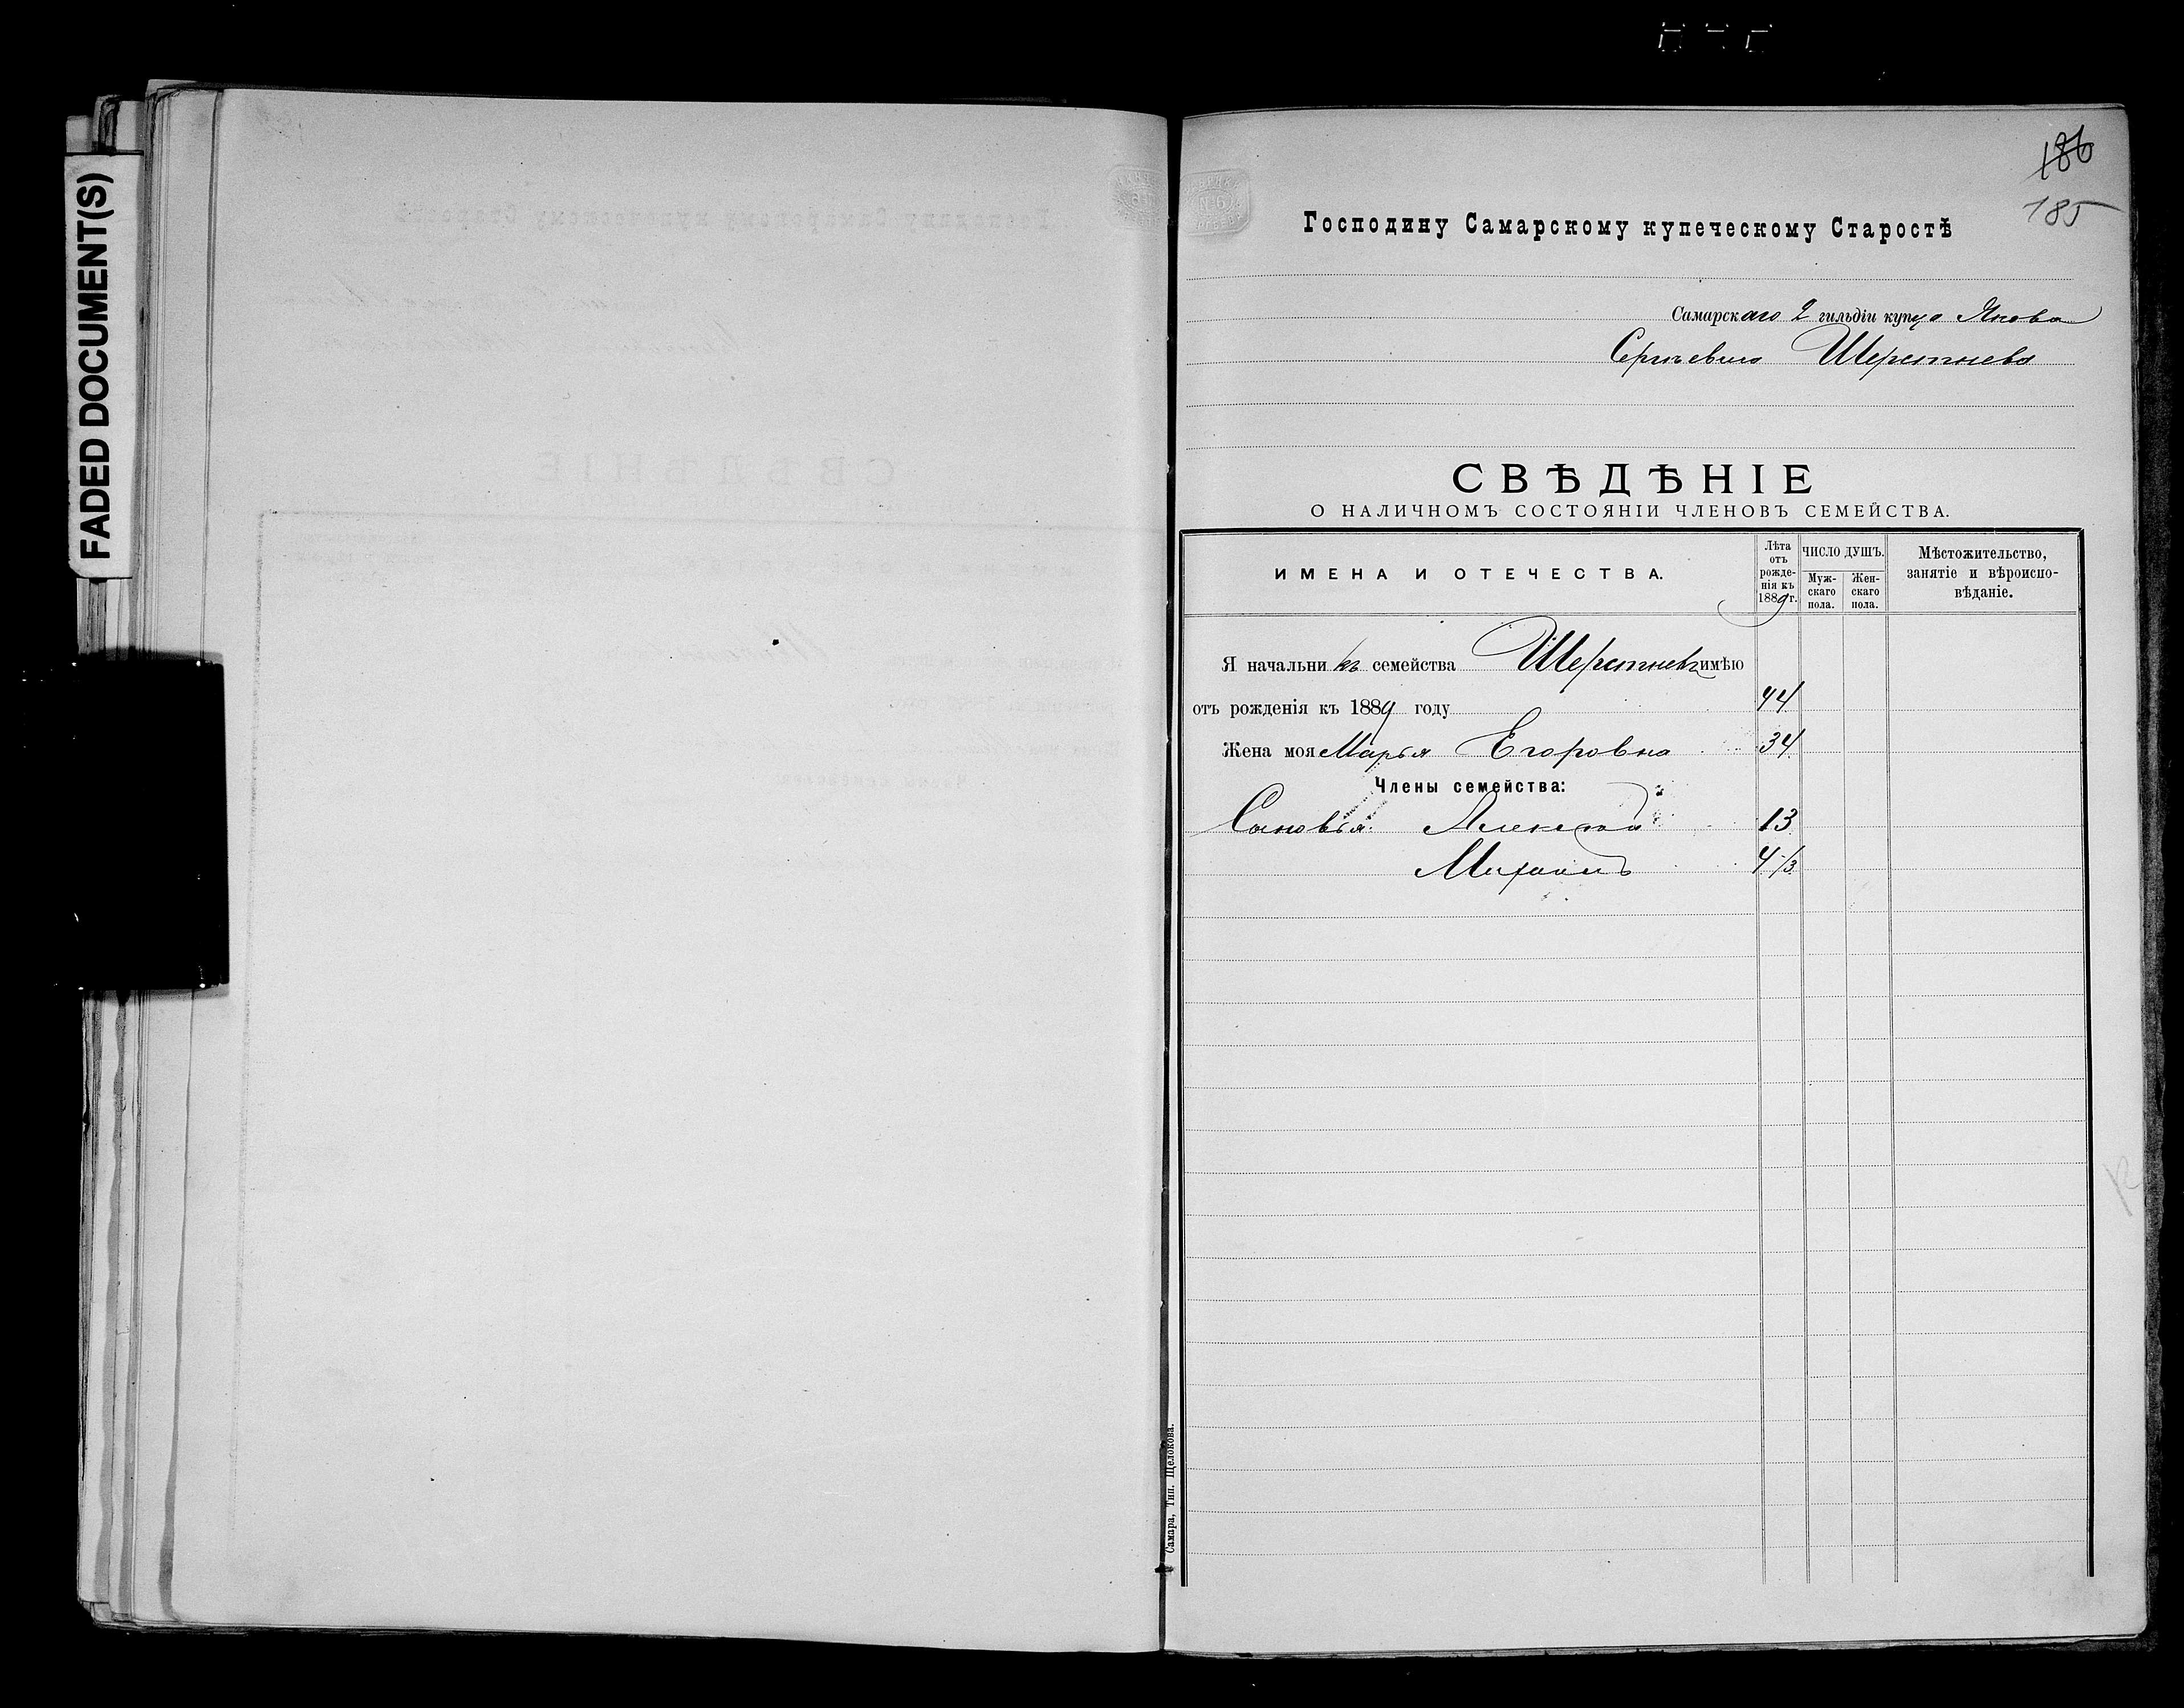 FADED DOCUMENT(S)
186
185
Господину Самарскому купеческому Старостѣ
Самарскаго 2 гильдіи купца Якова
Сергѣевича Шерстнева
СВѢДѢНІЕ
О НАЛИЧНОМЪ СОСТОЯНІИ ЧЛЕНОВЪ СЕМЕЙСТВА.
ИМЕНА И ОТЕЧЕСТВА.
Лѣта отъ рожденія къ 1889 г.
ЧИСЛО ДУШЪ.
Мужскаго пола.
Женскаго пола.
Мѣстожительство, занятіе и вѣроисповѣданіе.
Я начальникъ семейства Шерстневъ имѣю
отъ рожденія къ 1889 году 44
Жена моя Марья Егоровна 34
Члены семейства:
Сыновья: Алексѣй 13
Михаилъ 4/3
Самара, Тип. Щелокова.